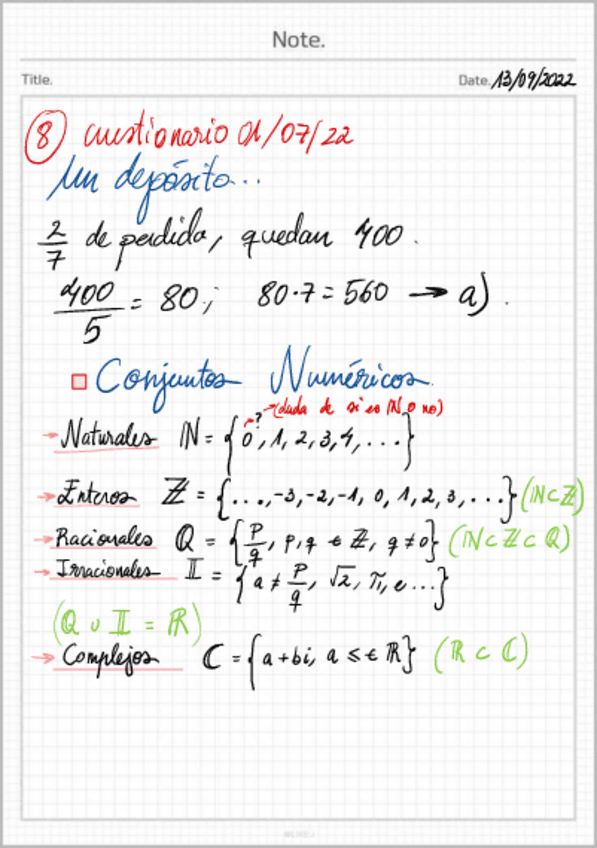 Note.
Title.
Date. 13/09/2022
⑧ cuestionario 01/07/22
Un depósito...
2/7 de perdida, quedan 400.
400/5 = 80; 80·7 = 560 → a).
Conjuntos Numéricos.
→ (duda de si es ℕ o no)
→ Naturales ℕ = {0?, 1, 2, 3, 4, ...}
→ Enteros ℤ = {..., -3, -2, -1, 0, 1, 2, 3, ...} (ℕ⊂ℤ)
→ Racionales ℚ = {p/q, p,q ∈ ℤ, q≠0} (ℕ⊂ℤ⊂ℚ)
→ Irracionales 𝕀 = {a ≠ p/q, √2, π, e ...}
(ℚ ∪ 𝕀 = ℝ)
→ Complejos ℂ = {a+bi, a ≤ ∈ ℝ} (ℝ ⊂ ℂ)